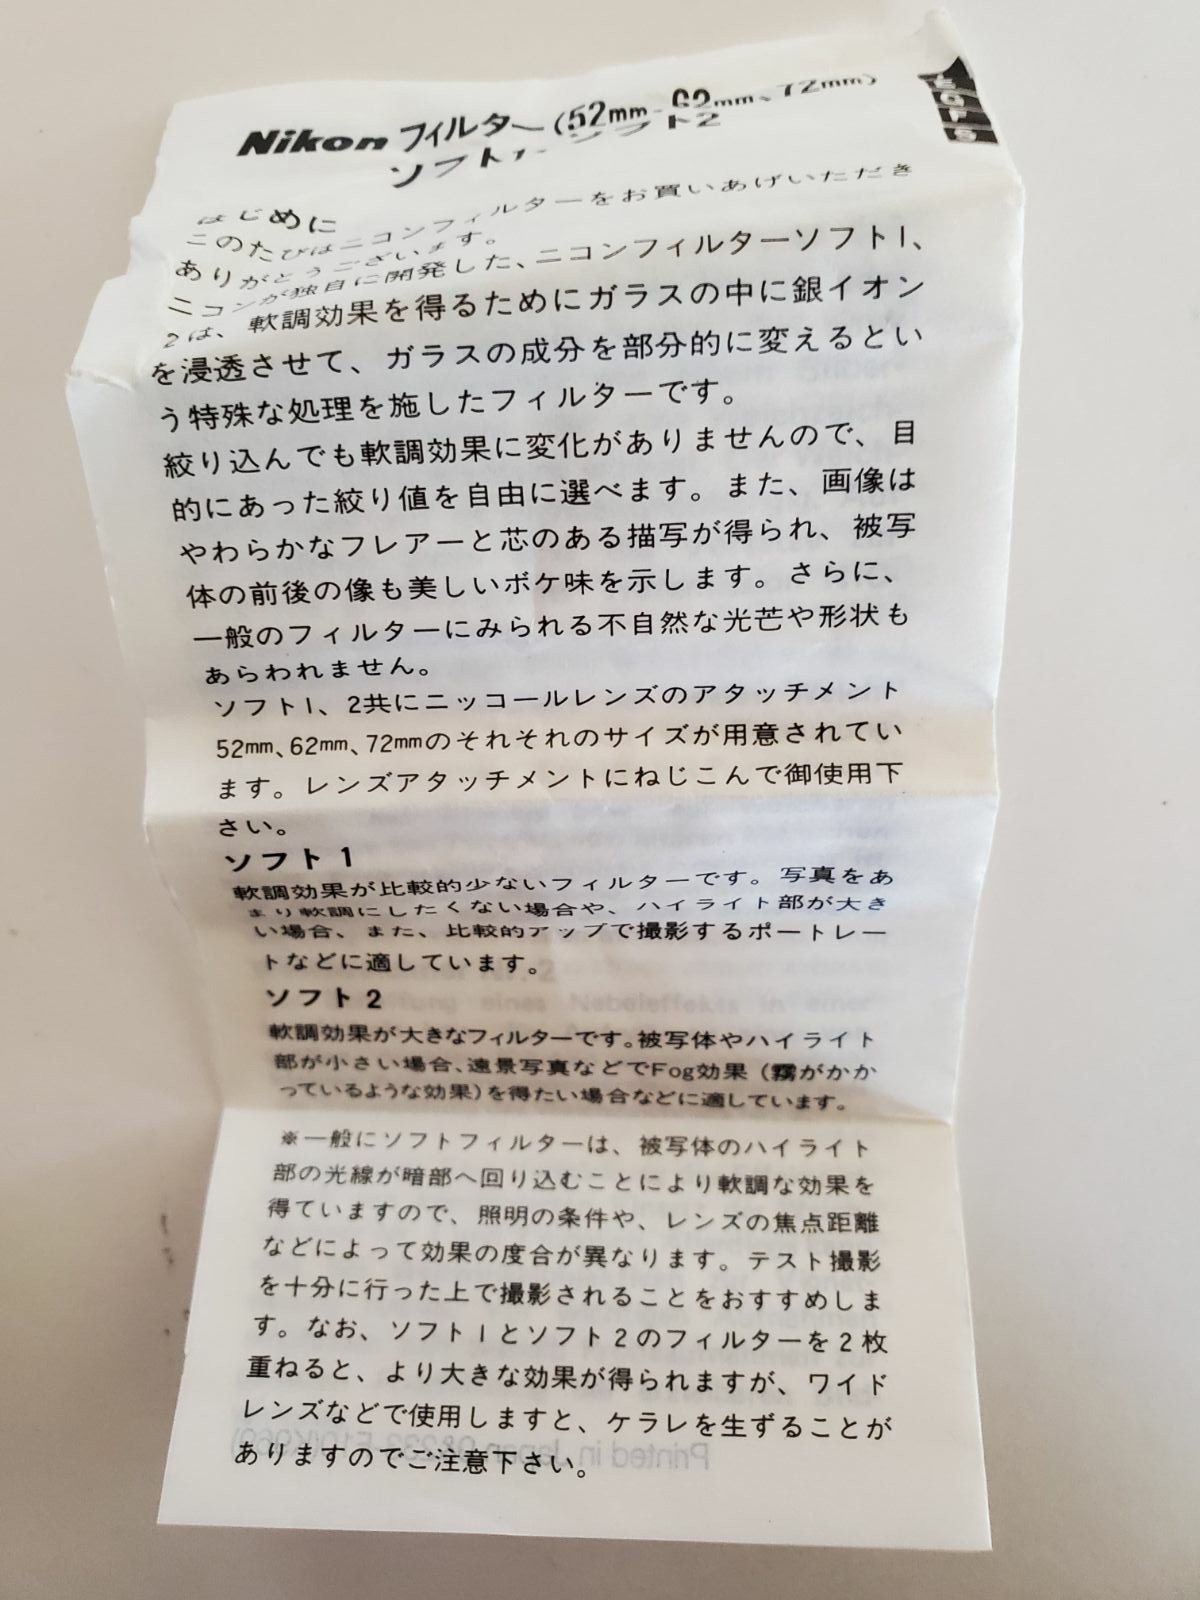 Nikon フィルター(52mm、62mm、72mm)
ソフト1、ソフト2
はじめに
このたびはニコンフィルターをお買いあげいただき
ありがとうございます。
ニコンが独自に開発した、ニコンフィルターソフト1、
2は、軟調効果を得るためにガラスの中に銀イオン
を浸透させて、ガラスの成分を部分的に変えるとい
う特殊な処理を施したフィルターです。
絞り込んでも軟調効果に変化がありませんので、目
的にあった絞り値を自由に選べます。また、画像は
やわらかなフレアーと芯のある描写が得られ、被写
体の前後の像も美しいボケ味を示します。さらに、
一般のフィルターにみられる不自然な光芒や形状も
あらわれません。
ソフト1、2共にニッコールレンズのアタッチメント
52mm、62mm、72mmのそれそれのサイズが用意されてい
ます。レンズアタッチメントにねじこんで御使用下
さい。
ソフト1
軟調効果が比較的少ないフィルターです。写真をあ
まり軟調にしたくない場合や、ハイライト部が大き
い場合、また、比較的アップで撮影するポートレー
トなどに適しています。
ソフト2
軟調効果が大きなフィルターです。被写体やハイライト
部が小さい場合、遠景写真などでFog効果(霧がかか
っているような効果)を得たい場合などに適しています。
※一般にソフトフィルターは、被写体のハイライト
部の光線が暗部へ回り込むことにより軟調な効果を
得ていますので、照明の条件や、レンズの焦点距離
などによって効果の度合が異なります。テスト撮影
を十分に行った上で撮影されることをおすすめしま
す。なお、ソフト1とソフト2のフィルターを2枚
重ねると、より大きな効果が得られますが、ワイド
レンズなどで使用しますと、ケラレを生ずることが
ありますのでご注意下さい。
Printed in Japan